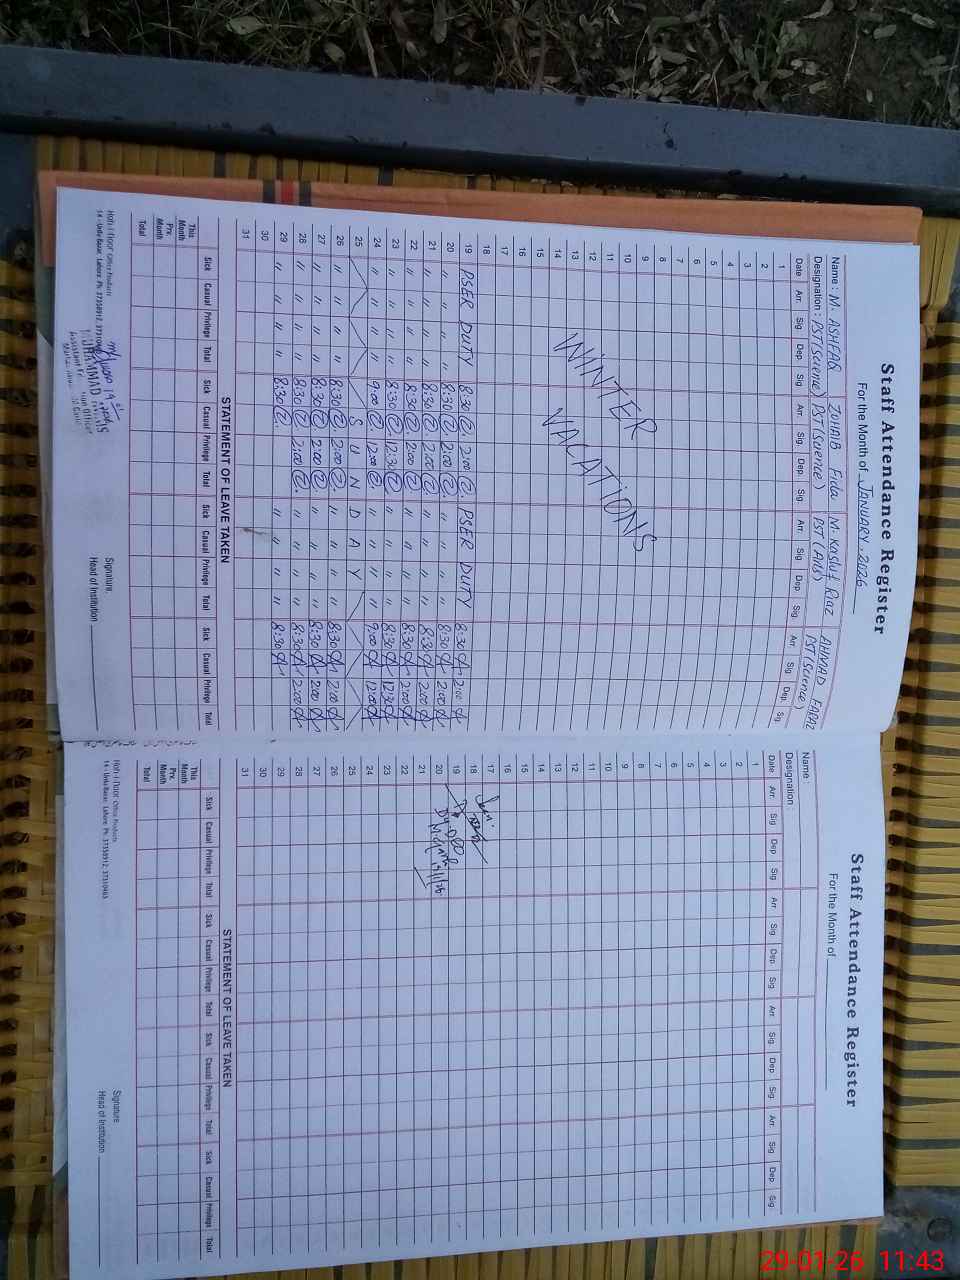 Staff Attendance Register
For the Month of JANUARY, 2026
Name : M. ASHFAQ ZOHAIB Fida M. Kashif Riaz AHMAD FARAZ
Designation : PST(Science) PST(Science) PST(Arts) PST(Science)
Date Arr. Sig Dep. Sig. Arr. Sig. Dep. Sig. Arr. Sig. Dep. Sig. Arr. Sig. Dep. Sig.
1
2
3
4
5
6
7
8
9
10
11
12
13
14
15
16
17
18
WINTER
VACATIONS
19 PSER DUTY 8:30 2:00 PSER DUTY 8:30 2:00
20 " " " " 8:30 2:00 " " " " 8:30 2:00
21 " " " " 8:30 2:00 " " " " 8:30 2:00
22 " " " " 8:30 2:00 " " " " 8:30 2:00
23 " " " " 8:30 12:30 " " " " 8:30 12:30
24 " " " " 9:00 12:00 " " " " 9:00 12:00
25 S U N D A Y
26 " " " " 8:30 2:00 " " " " 8:30 2:00
27 " " " " 8:30 2:00 " " " " 8:30 2:00
28 " " " " 8:30 2:00 " " " " 8:30 2:00
29 " " " " 8:30 " " " " 8:30
30
31
STATEMENT OF LEAVE TAKEN
Sick Casual Privilege Total Sick Casual Privilege Total Sick Casual Privilege Total Sick Casual Privilege Total
This Month
Prv. Month
Total
Signature.
Head of Institution
Office Products
14 - Urdu Bazar, Lahore. Ph: 37350912, 37310463
MUHAMMAD
Assistant Officer
Staff Attendance Register
For the Month of
Name :
Designation :
Date Arr. Sig. Dep. Sig. Arr. Sig. Dep. Sig. Arr. Sig. Dep. Sig. Arr. Sig. Dep. Sig.
1
2
3
4
5
6
7
8
9
10
11
12
13
14
15
16
17
18
19
20
21
22
23
24
25
26
27
28
29
30
31
Seen.
Dy. DEO
19/1/26
STATEMENT OF LEAVE TAKEN
Sick Casual Privilege Total Sick Casual Privilege Total Sick Casual Privilege Total Sick Casual Privilege Total
This Month
Prv. Month
Total
Signature
Head of Institution
Office Products
14 - Urdu Bazar, Lahore. Ph: 37350912, 37310463
29-01-26 11:43